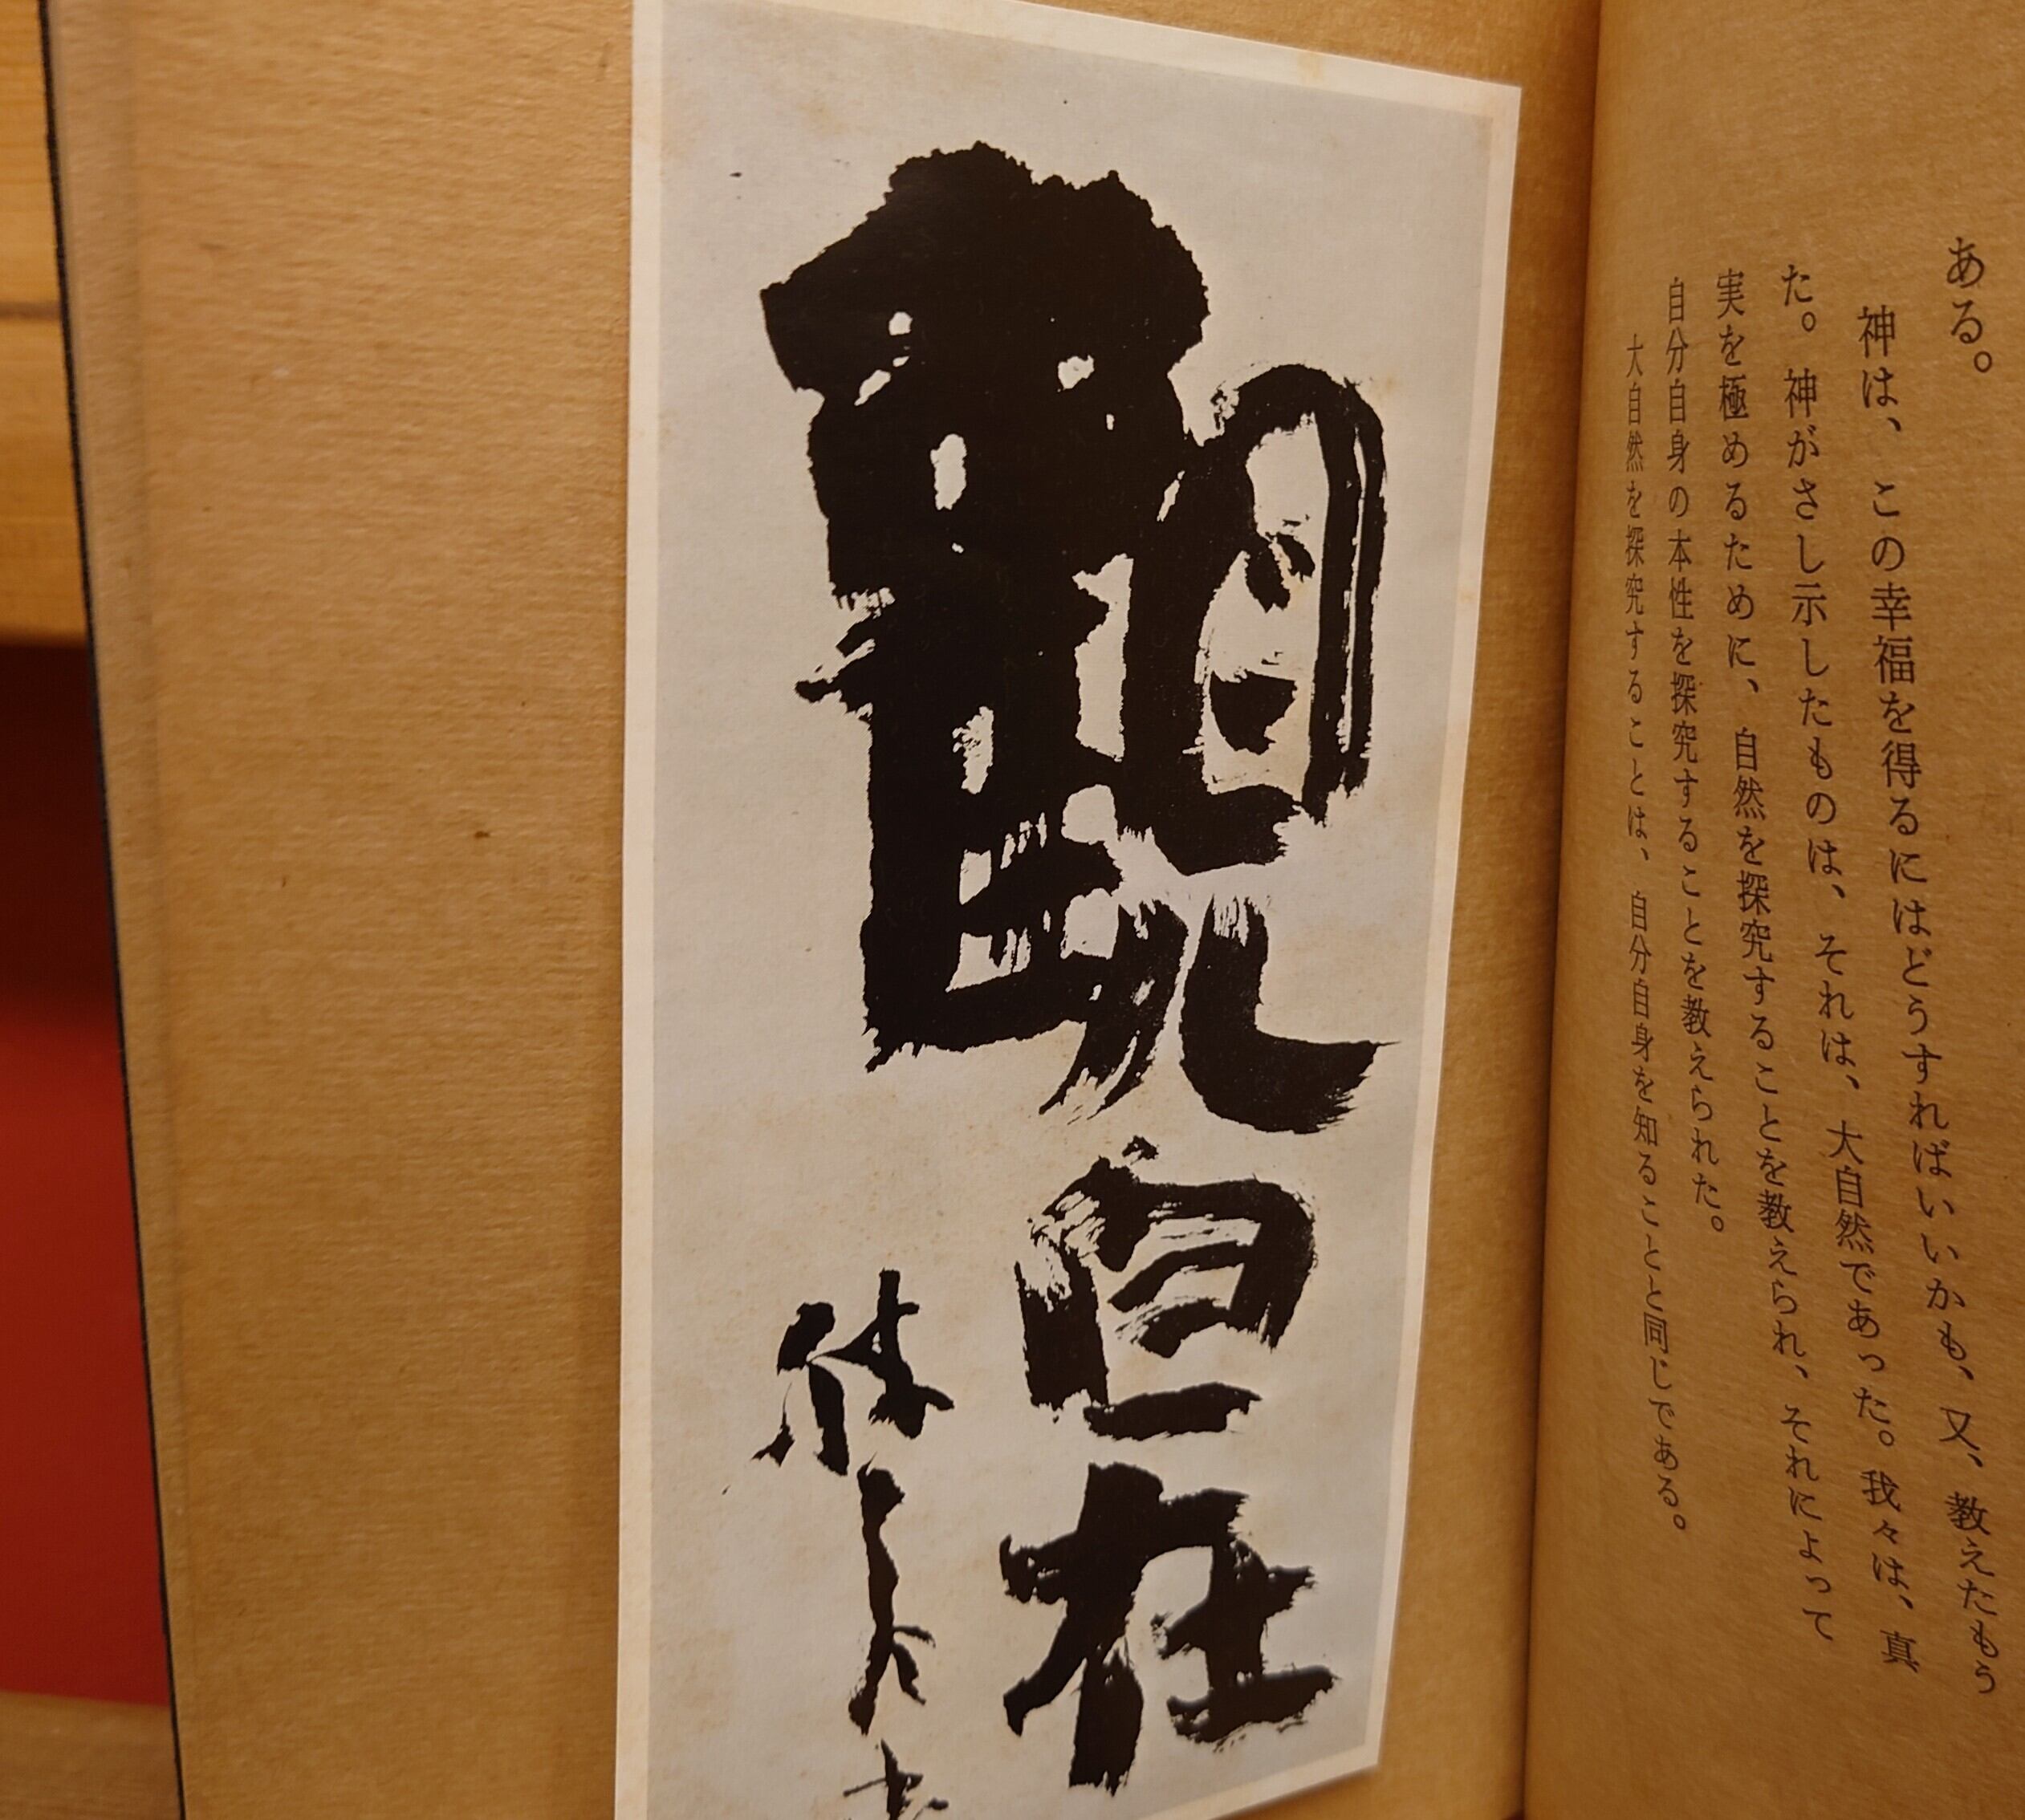 ある。
神は、この幸福を得るにはどうすればいいかも、又、教えたもう
た。神がさし示したものは、それは、大自然であった。我々は、真
実を極めるために、自然を探究することを教えられ、それによって
自分自身の本性を探究することを教えられた。
大自然を探究することは、自分自身を知ることと同じである。
観自在